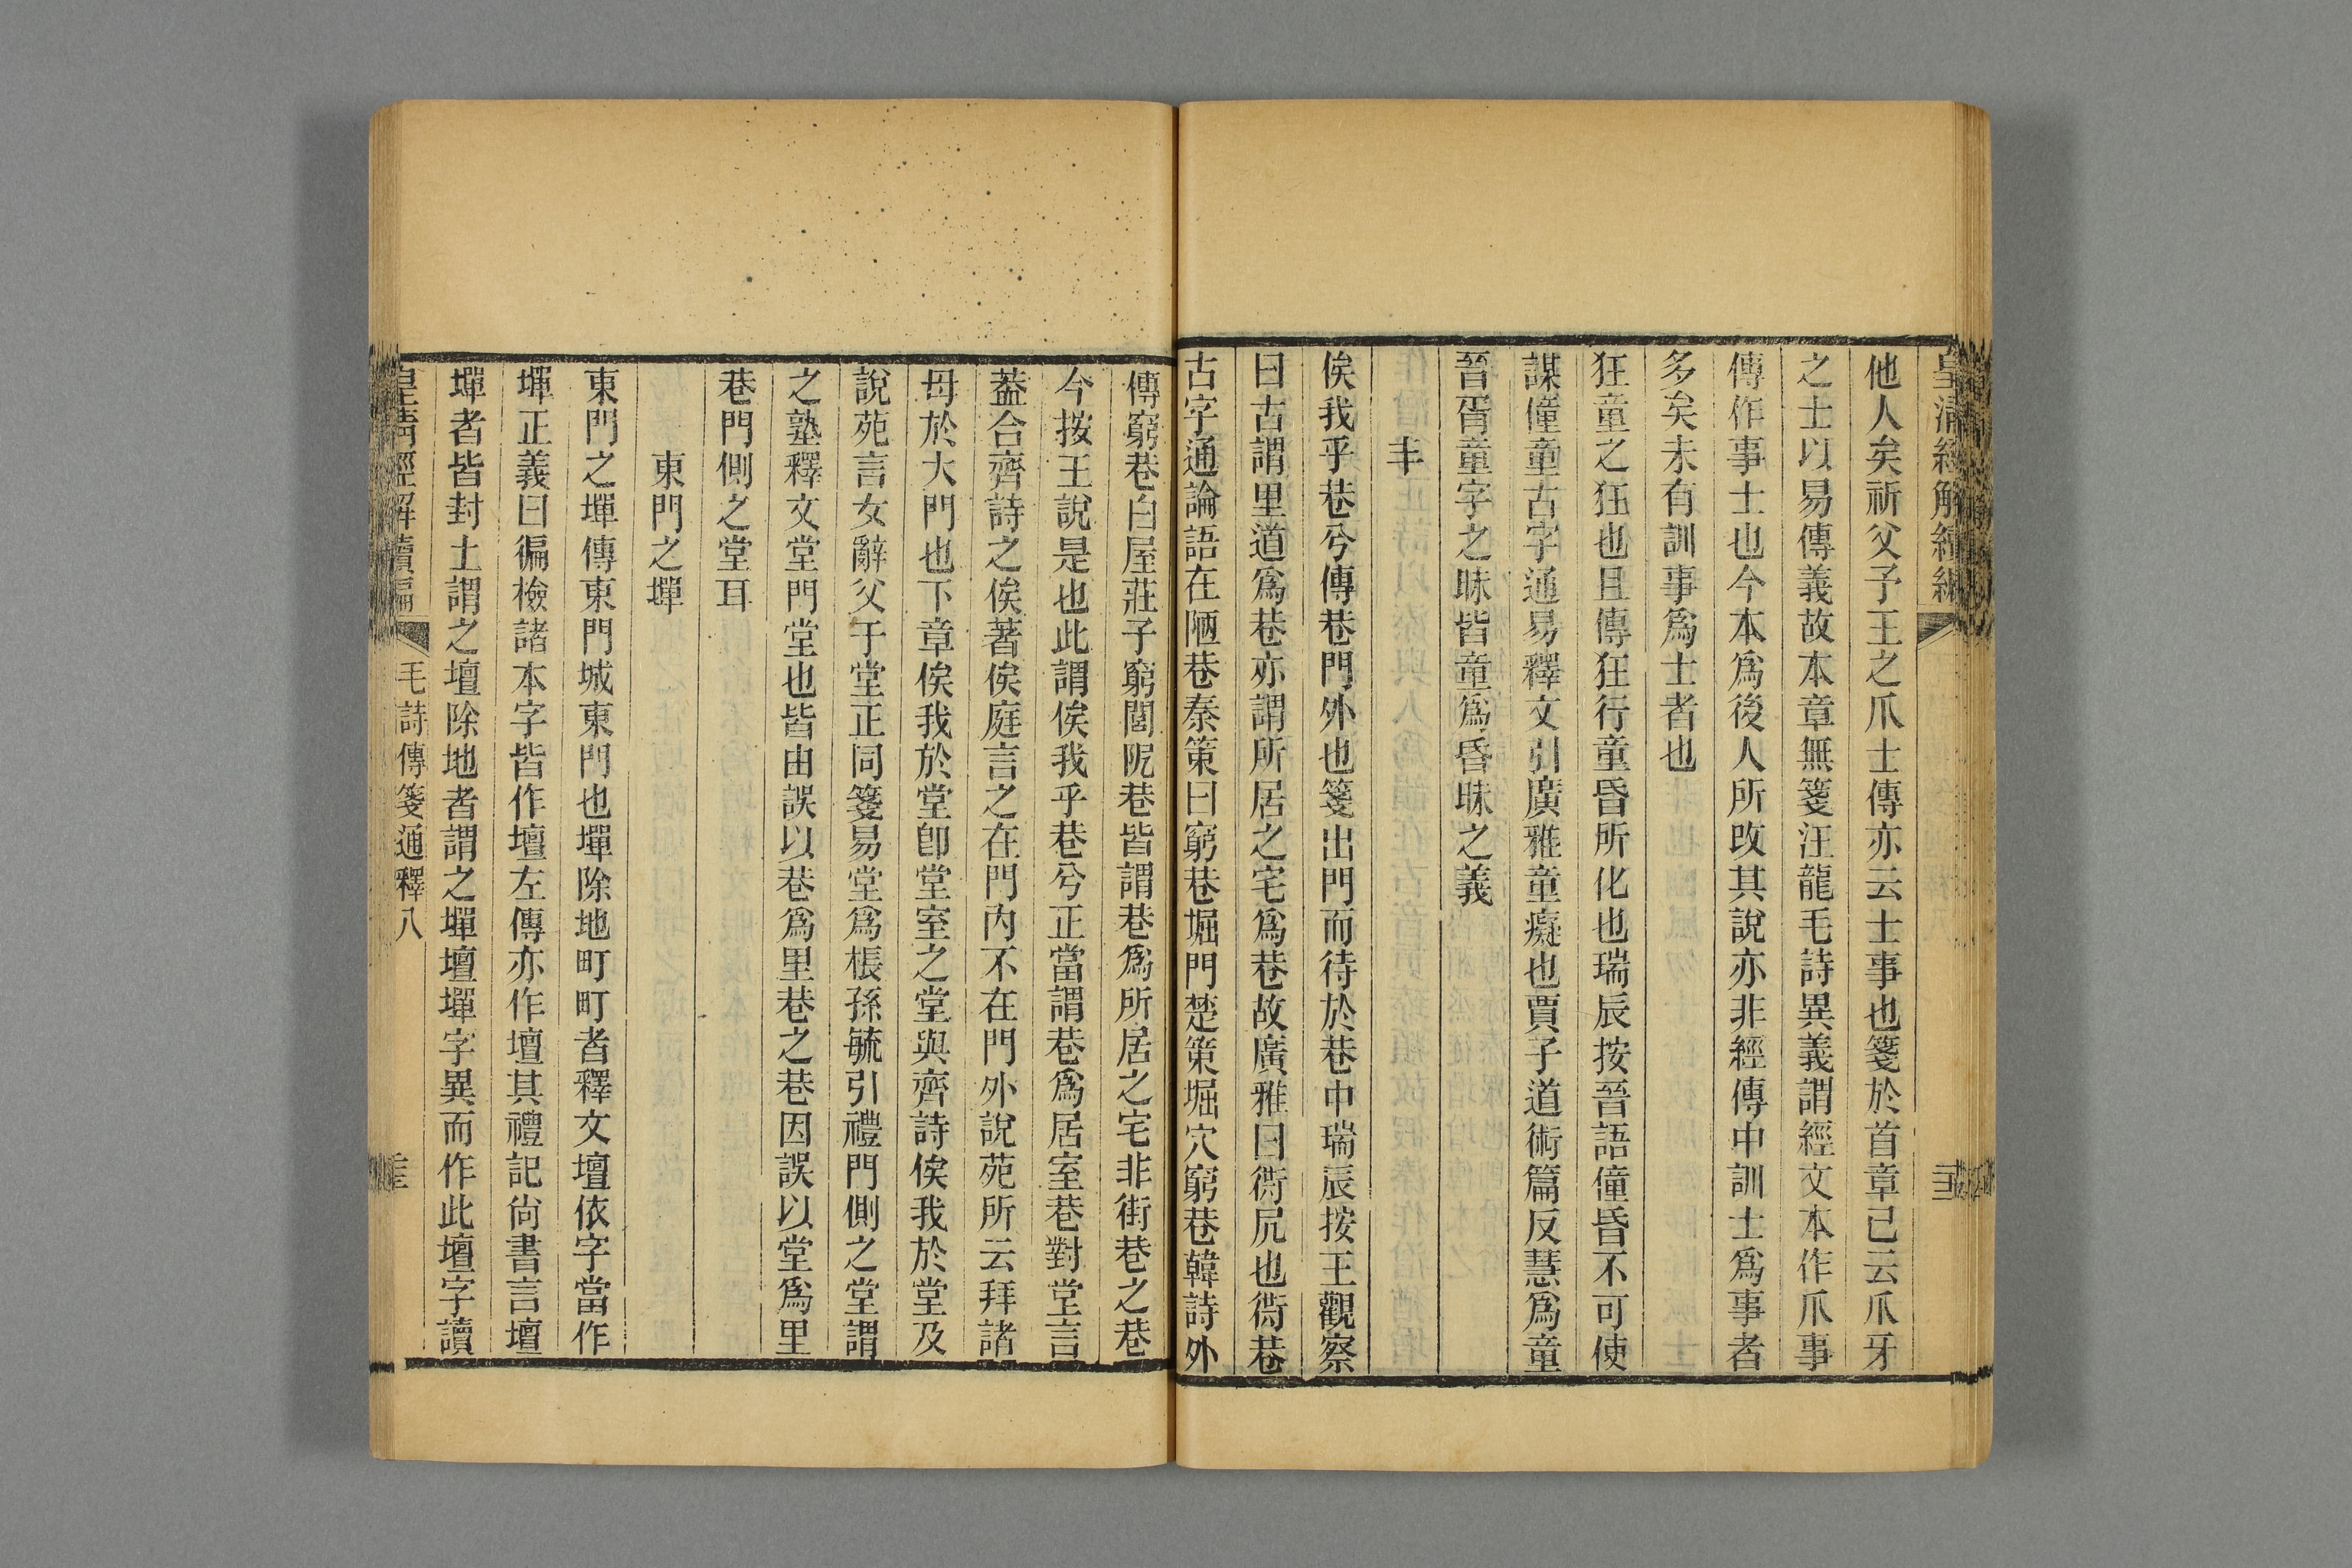 皇清經解續編
他人矣祈父予王之爪士傳亦云士事也箋於首章已云爪牙
之士以易傳義故本章無箋汪龍毛詩異義謂經文本作爪事
傳作事士也今本為後人所改其說亦非經傳中訓士為事者
多矣未有訓事為士者也
狂童之狂也且傳狂行童昏所化也瑞辰按晉語僮昏不可使
謀僮童古字通易釋文引廣雅童癡也賈子道術篇反慧為童
晉胥童字之昧皆童為昏昧之義
丰
俟我乎巷兮傳巷門外也箋出門而待於巷中瑞辰按王觀察
曰古謂里道為巷亦謂所居之宅為巷故廣雅曰衖凥也衖巷
古字通論語在陋巷秦策曰窮巷堀門楚策堀穴窮巷韓詩外
傳窮巷白屋莊子窮閭阨巷皆謂巷為所居之宅非街巷之巷
今按王說是也此謂俟我乎巷兮正當謂巷為居室巷對堂言
葢合齊詩之俟著俟庭言之在門內不在門外說苑所云拜諸
母於大門也下章俟我於堂卽堂室之堂與齊詩俟我於堂及
說苑言女辭父于堂正同箋易堂為棖孫毓引禮門側之堂謂
之塾釋文堂門堂也皆由誤以巷為里巷之巷因誤以堂為里
巷門側之堂耳
東門之墠
東門之墠傳東門城東門也墠除地町町者釋文壇依字當作
墠正義曰徧檢諸本字皆作壇左傳亦作壇其禮記尙書言壇
墠者皆封土謂之壇除地者謂之墠壇墠字異而作此壇字讀
皇清經解續編
毛詩傳箋通釋八